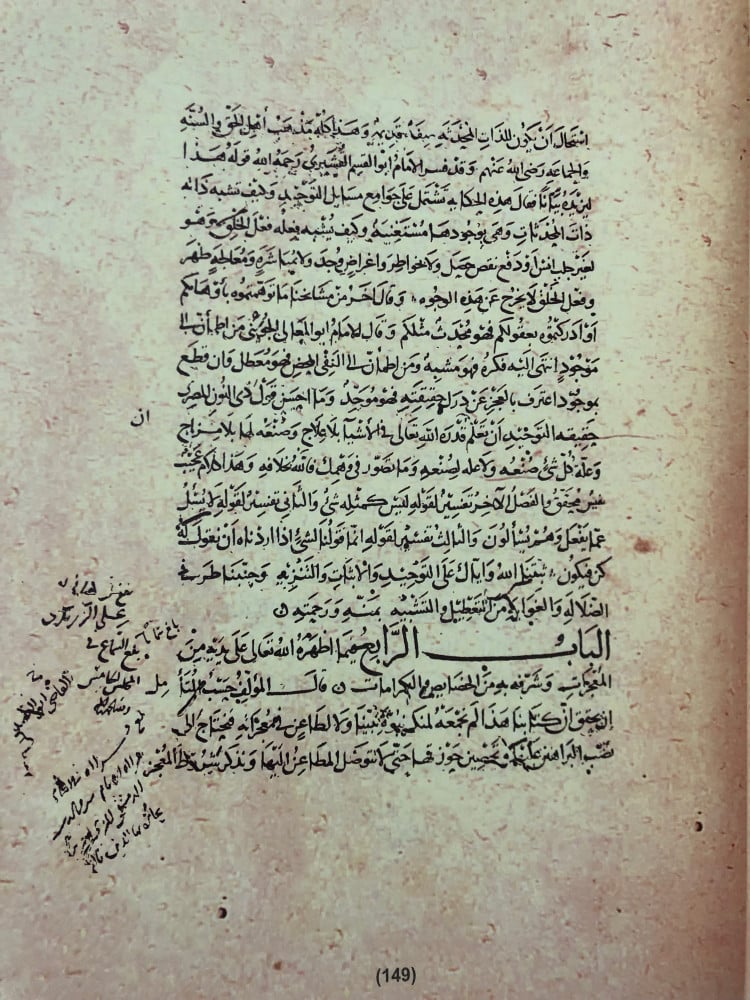 استحال أن يكون للذات المحدثه صفة قديمه وهذا كله مذهب أهل الحق والسنه
والجماعه رضي الله عنهم وقد فسر الامام ابو القسم القشيري رحمه الله قوله هذا
ليزيده بيانا فقال هذه الحكايه تشتمل على جوامع مسايل التوحيد وكيف تشبه ذاته
ذات المحدثات وهي بوجودها مستغنيه وكيف يشبه فعله فعل الخلق وهو
لغير جلب انس او دفع نقص حصل ولا بخواطر واغراض وجد ولا بمباشرة ومعالجة ظهر
وفعل الخلق لا يخرج عن هذه الوجوه وقال اخر من مشايخنا ما توهمتموه بأوهامكم
أو أدركتموه بعقولكم فهو محدث مثلكم وقال الامام ابو المعالي الجويني من اطمأن الى
موجود انتهى اليه فكره فهو مشبه ومن اطمأن الى النفي المحض فهو معطل وان قطع
بموجود اعترف بالعجز عن درك حقيقته فهو موحد وما احسن قول ذي النون المصري
حقيقه التوحيد أن تعلم قدرة الله تعالى في الأشيا بلا علاج وصنعه لها بلا مزاج
ان
وعلة كل شئ صنعه ولا عله لصنعه وما تصور في وهمك فالله بخلافه وهذا كلام عجيب
نفيس محقق والفصل الآخر تفسير لقوله ليس كمثله شئ والثاني تفسير لقوله لا يسئل
عما يفعل وهم يسألون والثالث تفسير لقوله انما قولنا لشئ اذا اردناه أن نقول له
كن فيكون ثبتنا الله واياك على التوحيد والاثبات والتنزيه وجنبنا طرفي
الضلاله والغوايه من التعطيل والتشبيه بمنه ورحمته
الباب الرابع فيما اظهره الله تعالى على يديه من
المعجزات وشرفه به من الخصايص والكرامات قال المؤلف حسب المتأمل
أن يحقق ان كتابنا هذا لم نجمعه لمنكر نبوة نبينا ولا لطاعن في معجزاته فنحتاج الى
نصب البراهين عليها وتحصين حوزتها حتى لا يتوصل المطاعن اليها ونذكر شروط المعجز
بلغ السماع في
المجلس الخامس
(149)